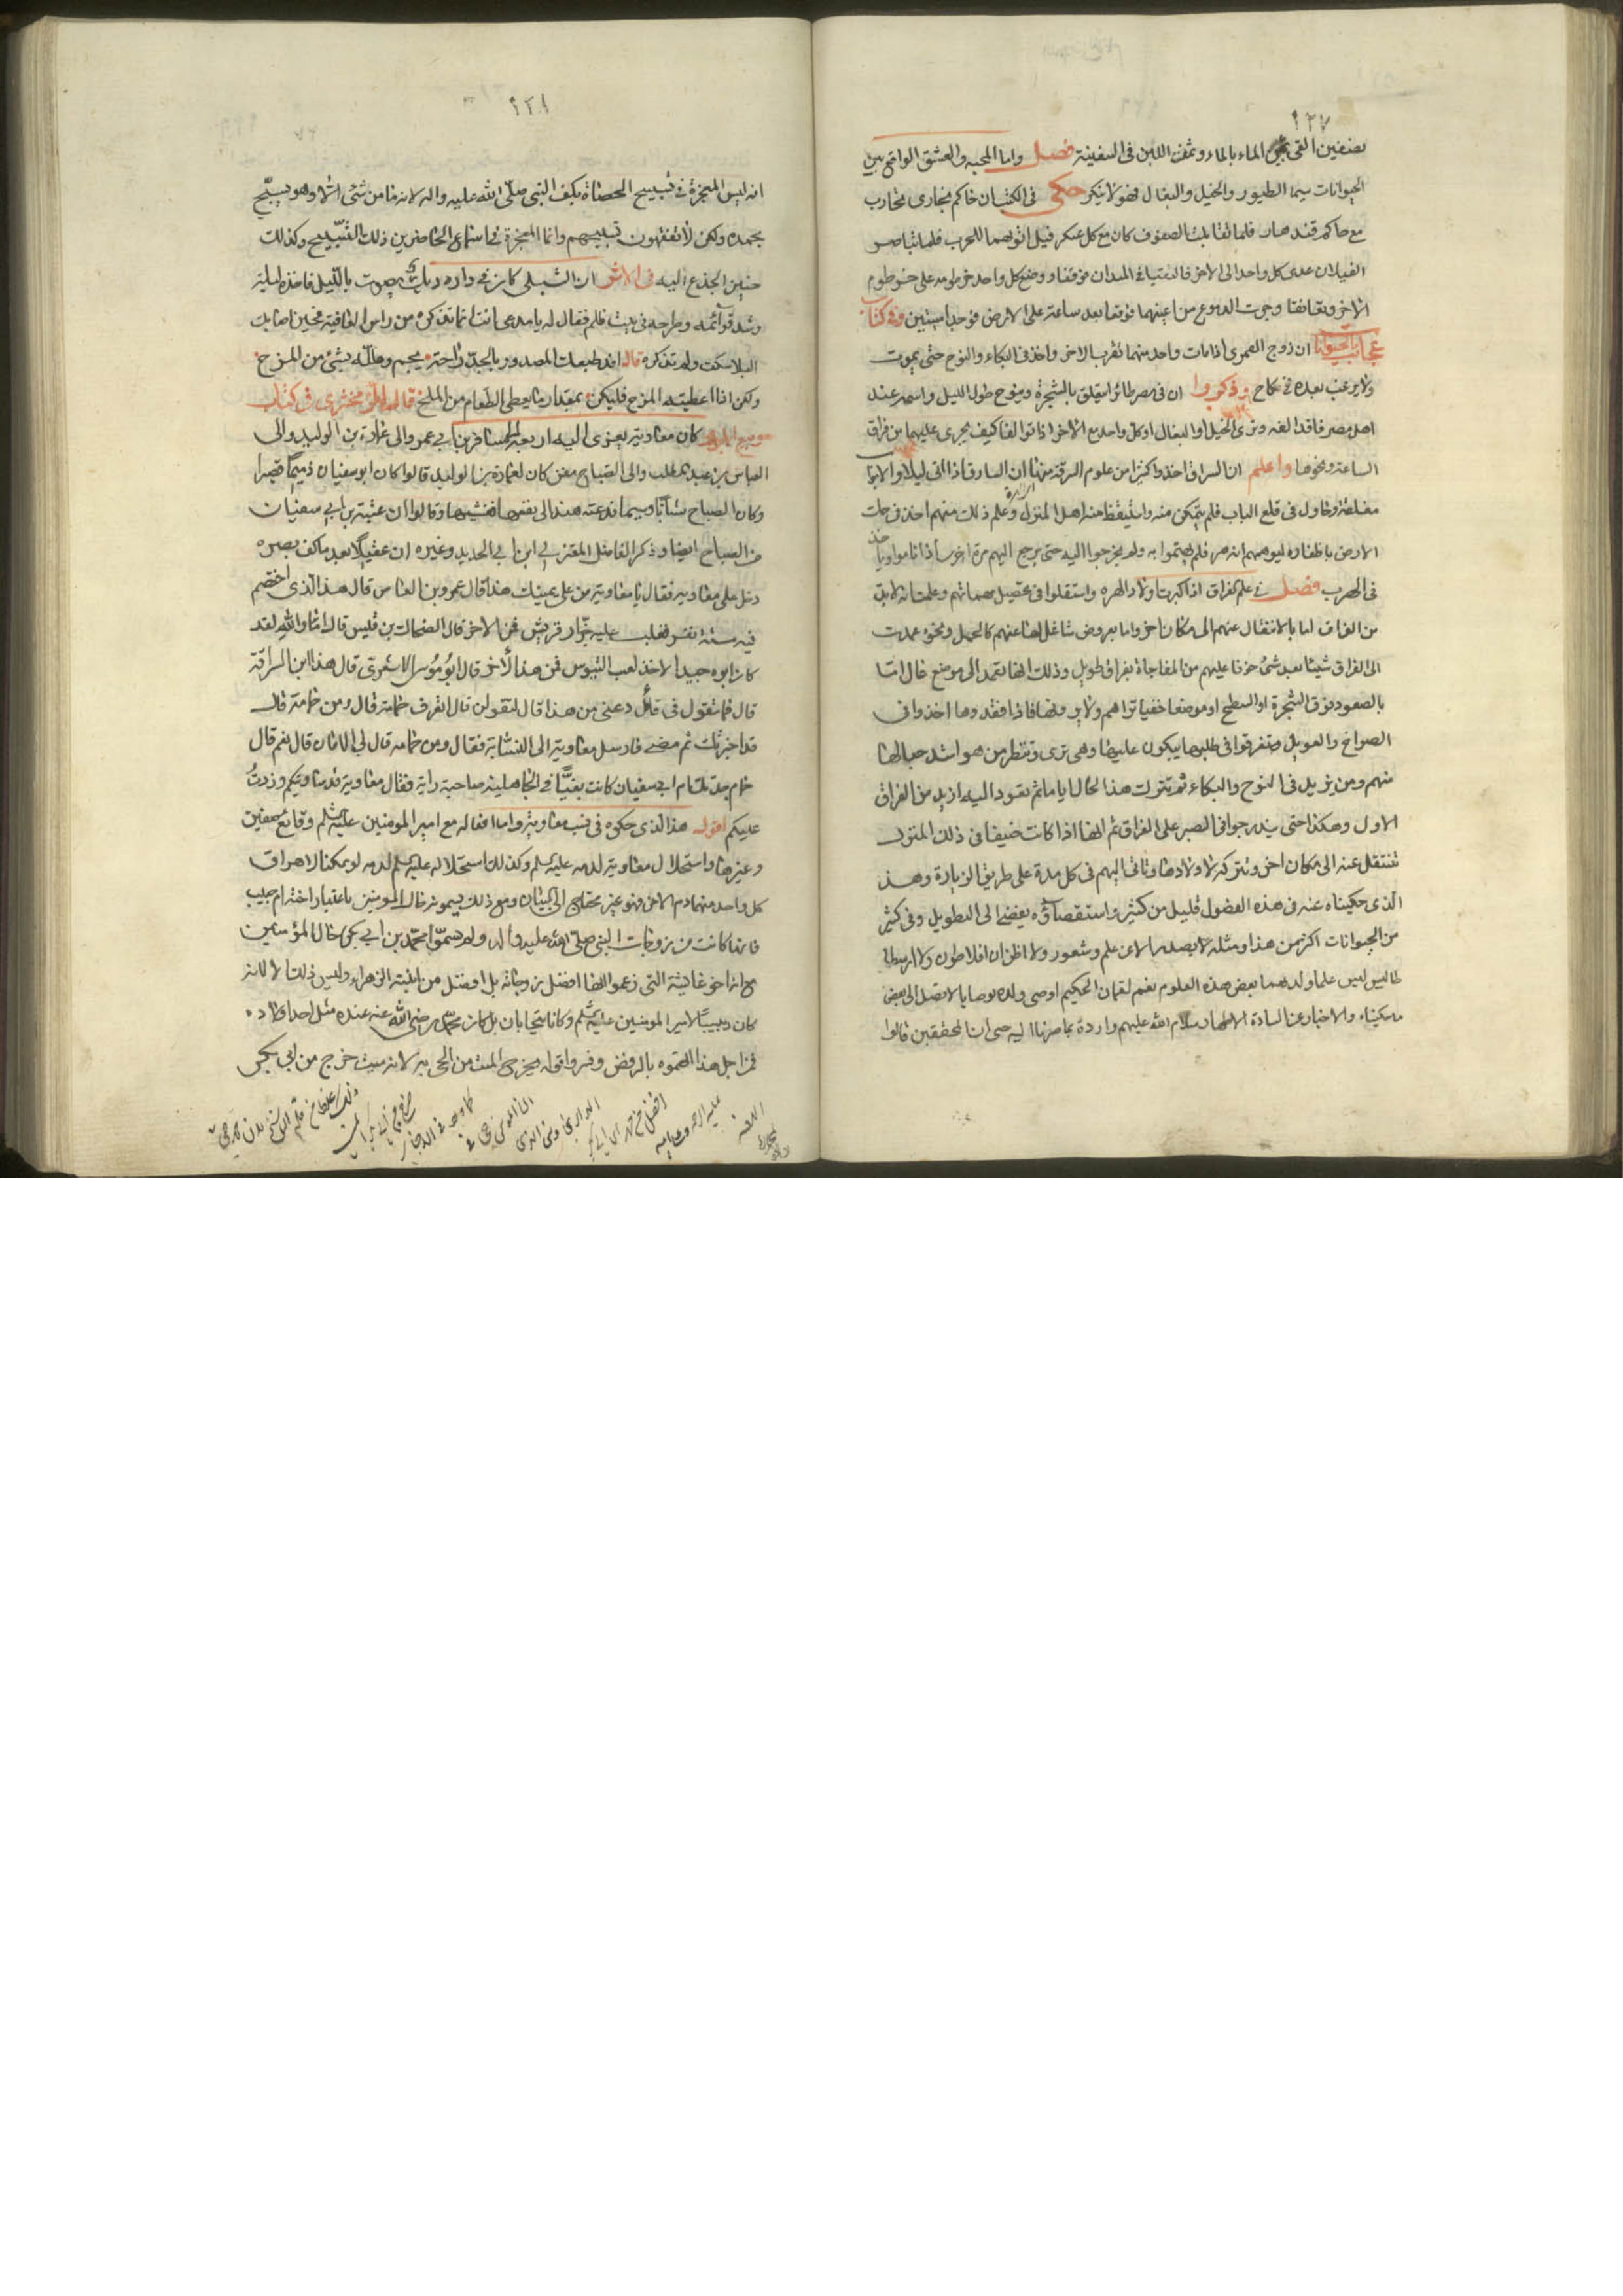 ١٢٧
بصنفين القى ثمن الماء بالماء وثمن اللبن فى السفينة فصل واما المحبه والعشق الواقع بين
الحيوانات سيما الطيور والخيل والبغال فهو لا ينكر حكى فى الكتب ان حاكم بخارى تحارب
مع حاكم قندهار فلما تقابلت الصفوف كان مع كل عسكر فيل اتو بهما للحرب فلما تباصر
الفيلان عدى كل واحد الى الاخر فالتقيا فى الميدان فوقفا ووضع كل واحد خرطومه على خرطوم
الاخر وتعانقا وجرت الدموع من اعينهما فوقعا بعد ساعة على الارض فوجدا ميتين وفى كتاب
عجائب الحيوانات ان زوج القمرى اذا مات واحد منهما لم يقرب الاخر واخذ فى البكاء والنوح حتى يموت
ولا يرغب بعده فى نكاح وذكروا ان فى مصر طائرا يتعلق بالشجرة وينوح طول الليل واسمه عند
اهل مصر فاقد الفه وترى الخيل او البغال او كل واحد مع الاخر اذا توالفا كيف يجرى عليهما من فراق
الساعة ونحوها واعلم ان السراق اخذوا كثيرا من علوم السرقة منها ان السارق اذا اتى ليلا والابواب
مغلقة وحاول فى قلع الباب فلم يتمكن منه واستيقظ منه اهل المنزل وعلم ذلك منهم اخذ فى حك
الارض باظفاره ليوهمهم انه هر فلم يهتموا به ولم يخرجوا اليه حتى يرجع اليهم مرة اخرى اذا ناموا وياخذ
فى الهرب فصل فى علم الفراق اذا كبرت اولاد الهره واستقلوا فى تحصيل مهماتهم وعلمت انه لا بد
من الفراق اما بالانتقال عنهم الى مكان اخر واما بعروض شاغل لها عنهم كالحمل ونحوه عمدت
الى الفراق شيئا بعد شئ خوفا عليهم من المفاجاة بفراق طويل وذلك انها تعمد الى موضع عال اما
بالصعود فوق الشجرة او السطح او موضعا خفيا تراهم ولا يرونها فاذا فقدوها اخذوا فى
الصراخ والعويل وتفرقوا فى طلبها يبكون عليها وهى ترى وتنظر من هو اشد حبا لها
منهم ومن يزيد فى النوح والبكاء ثم تترك هذا الحال اياما ثم تعود اليه ازيد من الفراق
الاول وهكذا حتى يتدرجوا فى الصبر على الفراق ثم انها اذا كانت ضيفا فى ذلك المنزل
تنتقل عنه الى مكان اخر وتتركه لاولادها وتاتى اليهم فى كل مدة على طريق الزيارة وهذا
الذى حكيناه عنه فى هذه الفصول قليل من كثير واستقصاؤه يفضى الى التطويل وفى كثير
من الحيوانات اكثر من هذا ومثله لا يصدر الا عن علم وشعور ولا اظن ان افلاطون ولا ارسطا
طاليس علما ولدهما بعض هذه العلوم نعم لقمان الحكيم اوصى ولده بوصايا لا تصل الى بعض
ما حكيناه والاخبار عن السادة الاطهار سلام الله عليهم واردة بما صرنا اليه حتى ان المحققين قالوا
١٢٨
انه ليس المعجزة فى تسبيح الحصاة بكف النبى صلى الله عليه واله لانه ما من شئ الا وهو يسبح
بحمده ولكن لا تفقهون تسبيحهم وانما المعجزة فى اسماع الحاضرين ذلك التسبيح وكذلك
حنين الجذع اليه فى الاثر ان الشبلى كان فى داره ديك يصوت بالليل فاخذه ليلة
وشد قوائمه وطرحه فى بيت فلم فقال له يا مدعى انت انما تذكره من راس العافية فحين اصابك
البلا سكت ولم تذكره قال افد طبعك المصدور بالجد راحة يجم وعلله بشئ من المزح
ولكن اذا اعطيته المزح فليكن بمقدار ما يعطى الطعام من الملح قال الزمخشرى فى كتاب
ربيع الابرار كان معاوية يعزى الى اربعة الى مسافر بن ابى عمرو والى عمارة بن الوليد والى
العباس بن عبد المطلب والى الصباح مغن كان لعمارة بن الوليد قالوا كان ابو سفيان دميما قصيرا
وكان الصباح شابا وسيما فدعته هند الى نفسها فغشيها وقالوا ان عتبة بن ابى سفيان
من الصباح ايضا وذكر الفاضل المعتزلى ابن ابى الحديد وغيره ان عقيلا بعد ما كف بصره
دخل على معاوية فقال يا معاوية من على يمينك هذا قال عمرو بن العاص قال هذا الذى اختصم
فيه ستة نفر فغلب عليه جزار قريش فمن الاخر قال الضحاك بن قيس قال اما والله لقد
كان ابوه جيد الاخذ لعب التيوس فمن هذا الاخر قال ابو موسى الاشعرى قال هذا ابن السراقة
قال فما تقول فى قال دعنى من هذا قال لتقولن قال اتعرف حمامة قال ومن حمامة قال
قد اخبرتك ثم مضى فارسل معاوية الى النسابة فقال ومن حمامه قال لى الامان قال نعم قال
حمامه جدتك ام ابى سفيان كانت بغيا فى الجاهلية صاحبة راية فقال معاوية قد ساويتكم وزدت
عليكم اقول هذا الذى حكوه فى نسب معاوية واما افعاله مع امير المومنين عليه السلام وقايع صفين
وغيرها واستحلال معاوية لدمه عليه السلم وكذلك استحلاله عليه السلم لدمه لو يمكنا لاهراق
كل واحد منهما دم الاخر فهو غير محتاج الى البيان ومع ذلك يسمونه خال المومنين باعتبار اخته ام حبيبه
فانها كانت من زوجات النبى صلى الله عليه واله ولم يسموا محمد بن ابى بكر خال المؤمنين
مع انه اخو عائشة التى زعموا انها افضل زوجاته بل افضل من ابنته الزهراء وليس ذلك الا لانه
كان ربيبا لامير المومنين عليه السلم وكانا يتحابان بل كان محمد رضى الله عنه عنده مثل احد اولاده
فمن اجل هذا اتهموه بالرفض وفسروا قوله يخرج الميت من الحى به لانه ميت خرج من ابى بكر